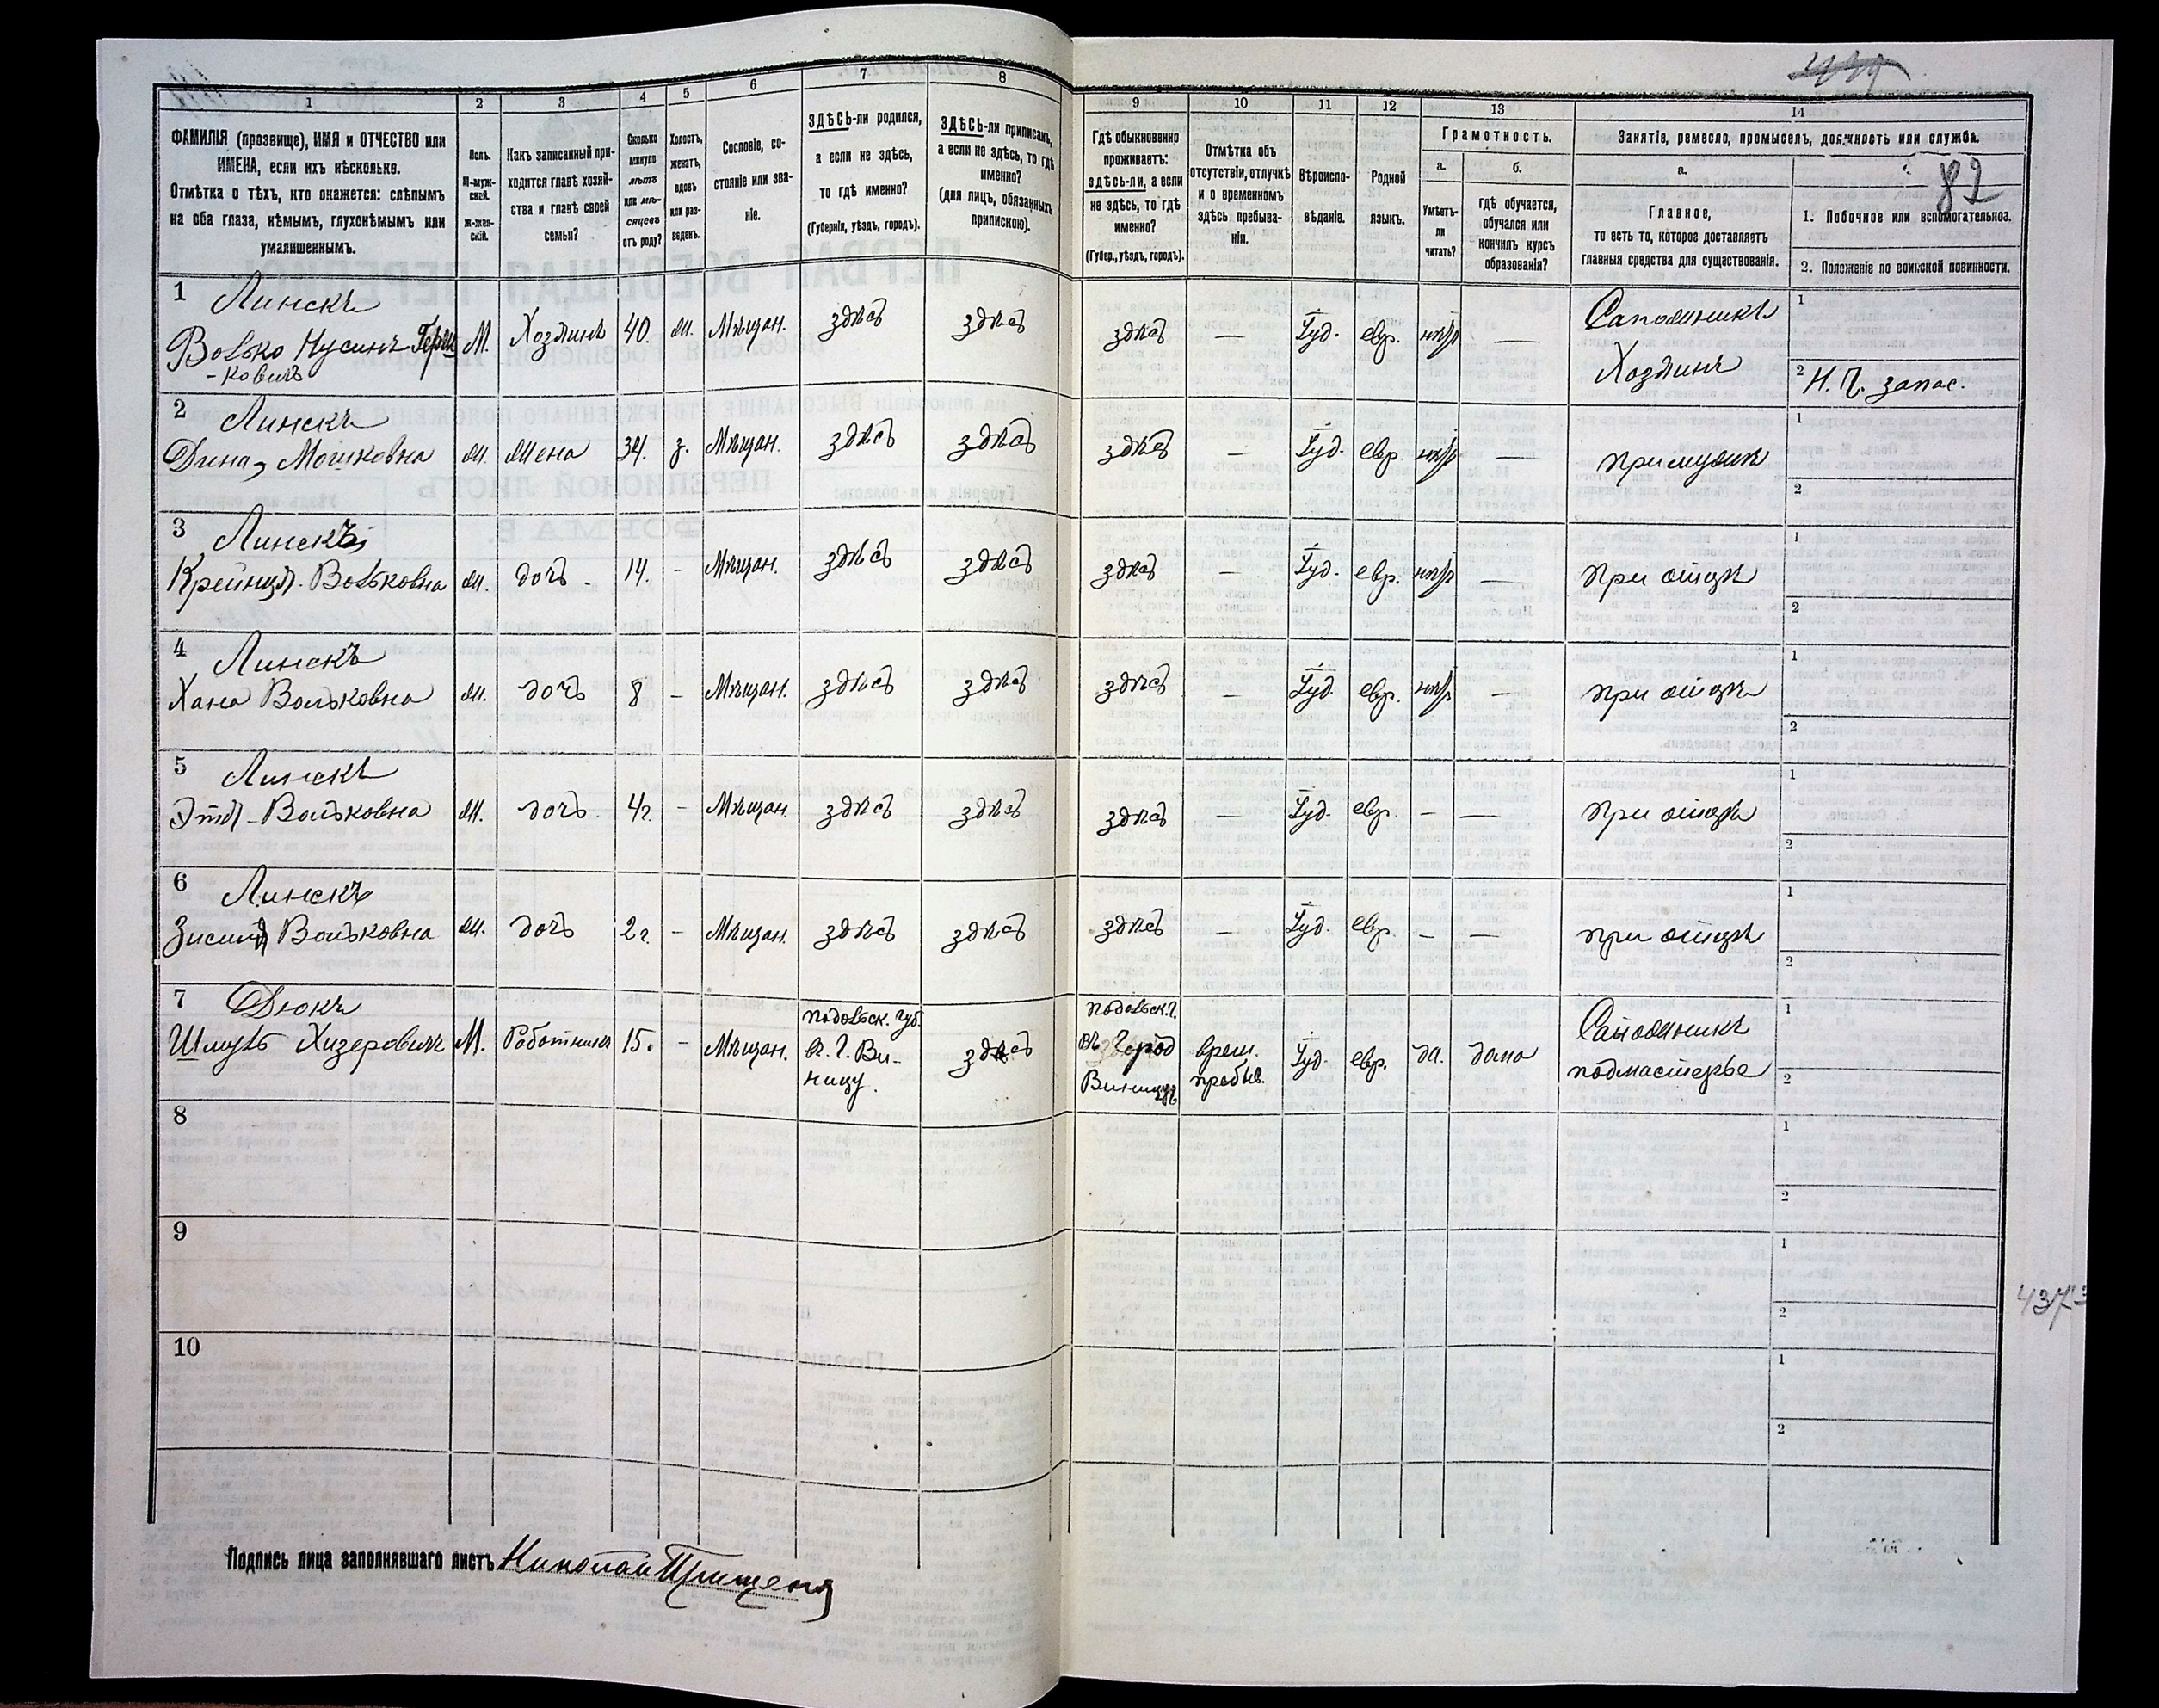 1
2
3
4
5
6
7
8
ФАМИЛІЯ (прозвище), ИМЯ и ОТЧЕСТВО или
ИМЕНА, если ихъ нѣсколько.
Отмѣтка о тѣхъ, кто окажется: слѣпымъ
на оба глаза, нѣмымъ, глухонѣмымъ или
умалишеннымъ.
Полъ.
М-муж-
ской.
Ж-жен-
скій.
Какъ записанный при-
ходится главѣ хозяй-
ства и главѣ своей
семьи?
Сколько
минуло
лѣтъ
или мѣ-
сяцевъ
отъ роду?
Холостъ,
женатъ,
вдовъ
или раз-
веденъ.
Сословіе, со-
стояніе или зва-
ніе.
ЗДѢСЬ-ли родился,
а если не здѣсь,
то гдѣ именно?
(Губернія, уѣздъ, городъ).
ЗДѢСЬ-ли приписанъ,
а если не здѣсь, то гдѣ
именно?
(для лицъ, обязанныхъ
припискою).
9
10
11
12
13
14
Гдѣ обыкновенно
проживаетъ:
здѣсь-ли, а если
не здѣсь, то гдѣ
именно?
(Губер., уѣздъ, городъ).
Отмѣтка объ
отсутствіи, отлучкѣ
и о временномъ
здѣсь пребыва-
ніи.
Вѣроиспо-
вѣданіе.
Родной
языкъ.
Грамотность.
а.
Умѣетъ-
ли
читать?
б.
гдѣ обучается,
обучался или
кончилъ курсъ
образованія?
Занятіе, ремесло, промыселъ, должность или служба.
а.
82
Главное,
то есть то, которое доставляетъ
главныя средства для существованія.
1. Побочное или вспомогательное.
2. Положеніе по воинской повинности.
1 Линскъ
Волько Нусинъ Герш
-ковичъ
М. Хозяинъ 40. ж. Мѣщан. здѣсь здѣсь здѣсь — Іуд. евр. нѣт —
Сапожникъ
Хозяинъ
1
2 Н. Ч. запас.
2 Линскъ
Дина Мошковна ж. Жена 34. з. Мѣщан. здѣсь здѣсь здѣсь — Іуд. евр. нѣт — при мужѣ
1
2
3 Линскъ
Крейнця Вольковна ж. дочь - 14. - Мѣщан. здѣсь здѣсь здѣсь — Іуд. евр. нѣт — при отцѣ
1
2
4 Линскъ
Хана Вольковна ж. дочь 8 - Мѣщан. здѣсь здѣсь здѣсь — Іуд. евр. нѣт — при отцѣ
1
2
5 Линскъ
Этя Вольковна ж. дочь 4г. - Мѣщан. здѣсь здѣсь здѣсь — Іуд. евр. — — при отцѣ
1
2
6 Линскъ
Вольковна ж. дочь 2г. - Мѣщан. здѣсь здѣсь здѣсь — Іуд. евр. — — при отцѣ
1
2
7 Дюкъ
Шмуль Хизеровичъ М. Работникъ 15. - Мѣщан.
подольск. губ.
в. г. Ви-
ницу.
здѣсь
подольск. г.
въ город
Виницѣ
врем.
пребыв.
Іуд. евр. да. дома
Сапожникъ
подмастерье
1
2
8
1
2
9
1
2
10
1
2
4373
Подпись лица заполнявшаго листъ Николай Прищепя